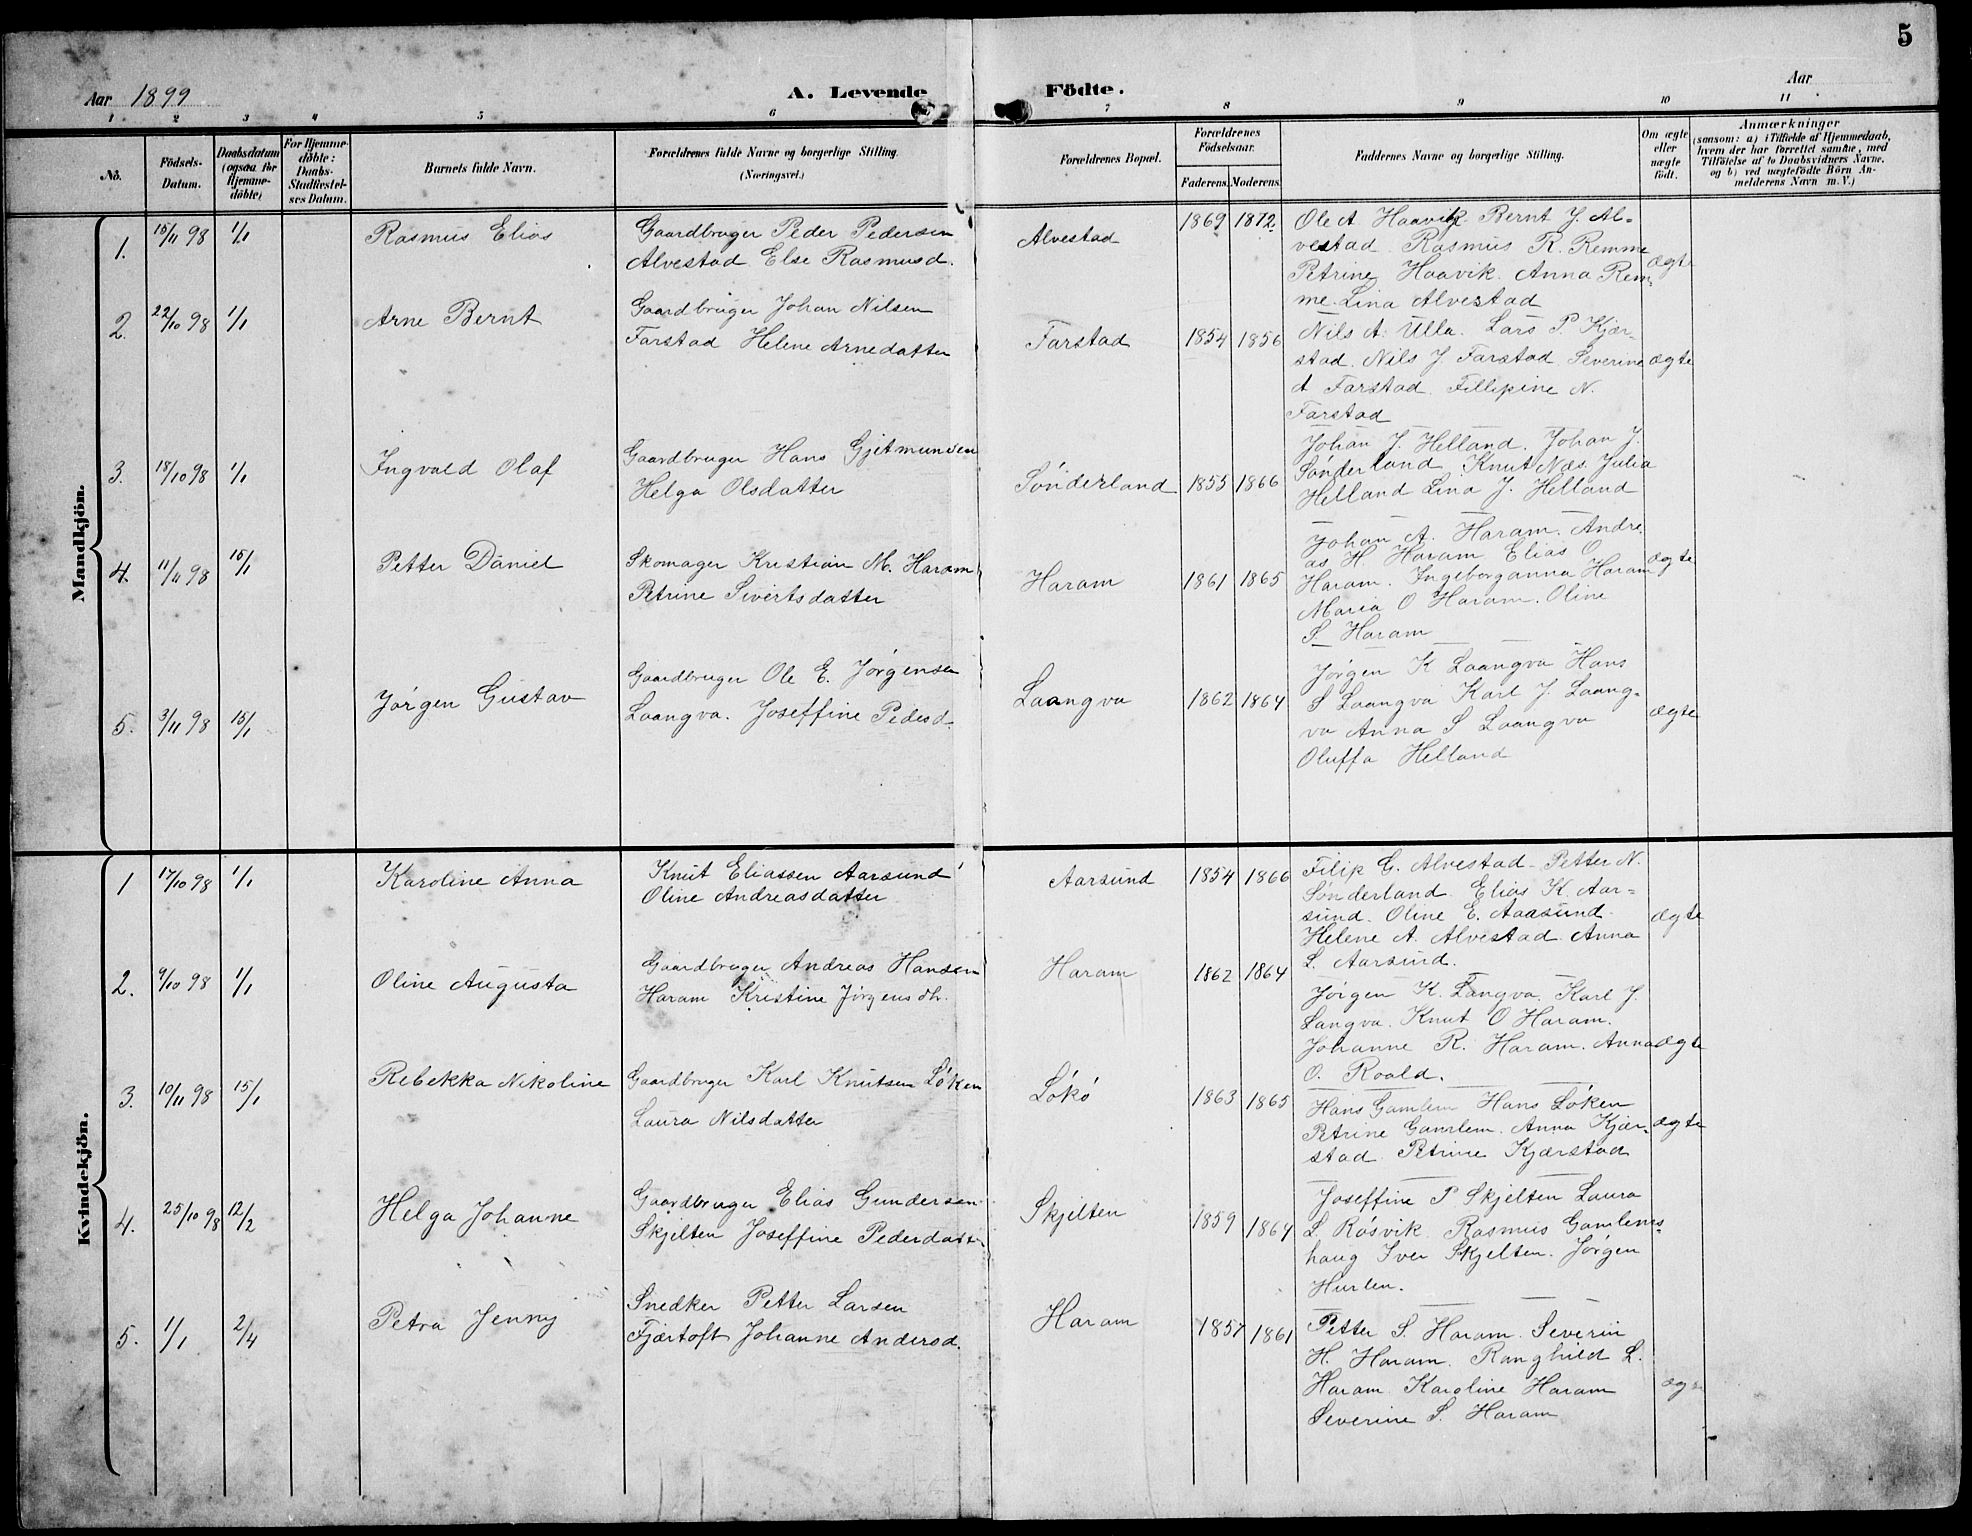 5
Aar 1899
A. Levende Födte.
Aar
1 2 3 4 5 6 7 8 9 10 11
No.
Födsels-
Datum.
Daabsdatum
(ogsaa for
Hjemme-
döbte)
For Hjemme-
döbte:
Daabs-
Stadfæstel-
ses Datum.
Barnets fulde Navn.
Forældrenes fulde Navne og borgerlige Stilling.
(Næringsvei.)
Forældrenes Bopæl.
Forældrenes
Födselsaar.
Faderens. Moderens.
Faddernes Navne og borgerlige Stilling.
Om ægte
eller
uægte
födt.
Anmærkninger
(saasom: a) i Tilfælde af Hjemmedaab,
hvem der har forrettet samme, med
Tilföielse af to Daabsvidners Navne,
og b) ved uægtefödte Börn An-
melderens Navn m. V.)
Mandkjön.
1. 15/11 98 1/1 Rasmus Elias
Gaardbruger Peder Pedersen
Alvestad Else Rasmusd.
Alvestad 1869 1872
Ole A Haavik Bernt J. Al-
vestad Rasmus R. Remme
Petrine Haavik. Anna Rem-
me. Lina Alvestad
ægte
2. 22/10 98 1/1 Arne Bernt
Gaardbruger Johan Nilsen
Farstad Helene Arnedatter
Farstad 1854 1856
Nils A. Ulla. Lars P. Kjær-
stad. Nils J. Farstad Severine
A Farstad. Fillipine N.
Farstad
ægte
3. 18/10 98 1/1 Ingvald Olaf
Gaardbruger Hans Gjetmundsen
Helga Olsdatter
Sønderland 1855 1866
Johan J. Helland. Johan J.
Sønderland Knut Næs. Julia
Helland Lina J. Helland
4. 11/11 98 15/1 Petter Daniel
Skomager Kristian M. Haram
Petrine Sivertsdatter
Haram 1861 1865
Johan A. Haram. Andre-
as H. Haram Elias O
Haram. Ingeborganna Haram
Maria O Haram. Oline
S. Haram
ægte
5. 3/11 98 15/1 Jørgen Gustav
Gaardbruger Ole E. Jørgensen
Laangva. Joseffine Pedesd.
Laangva 1862 1864
Jørgen K Laangva Hans
S Laangva Karl J. Laang-
va Anna S Laangva
Oluffa Helland
ægte
Kvindekjön.
1 17/10 98 1/1 Karoline Anna
Knut Eliassen Aarsund
Oline Andreasdatter
Aarsund 1854 1866
Filip G. Alvestad. Petter N.
Sønderland. Elias K. Aar-
sund. Oline E. Aarsund.
Helene A. Alvestad Anna
L. Aarsund.
ægte
2. 9/10 98 1/1 Oline Augusta
Gaardbruger Andreas Hansen
Haram Kristine Jørgensdtr.
Haram 1862 1864
Jørgen K. Langva. Karl J.
Langva. Knut O Haram.
Johanne R. Haram. Anna
O. Roald.
ægte
3. 10/11 98 15/1 Rebekka Nikoline
Gaardbruger Karl Knutsen Løken
Laura Nilsdatter
Løkø 1863 1865
Hans Gamlem Hans Løken
Petrine Gamlem. Anna Kjær-
stad Petrine Kjærstad
ægte
4. 25/10 98 12/2 Helga Johanne
Gaardbruger Elias Gundersen
Skjelten Joseffine Pederdatter
Skjelten 1859 1864
Joseffine P Skjelten Laura
L. Røsvik Rasmus Gamlems-
haug Iver Skjelten. Jørgen
Hurlen.
5. 1/1 2/4 Petra Jenny
Snedker Petter Larsen
Fjærtoft Johanne Andersd.
Haram 1857 1861
Petter S. Haram. Severin
H. Haram. Ranghild L.
Haram Karoline Haram
Severine S. Haram
ægte